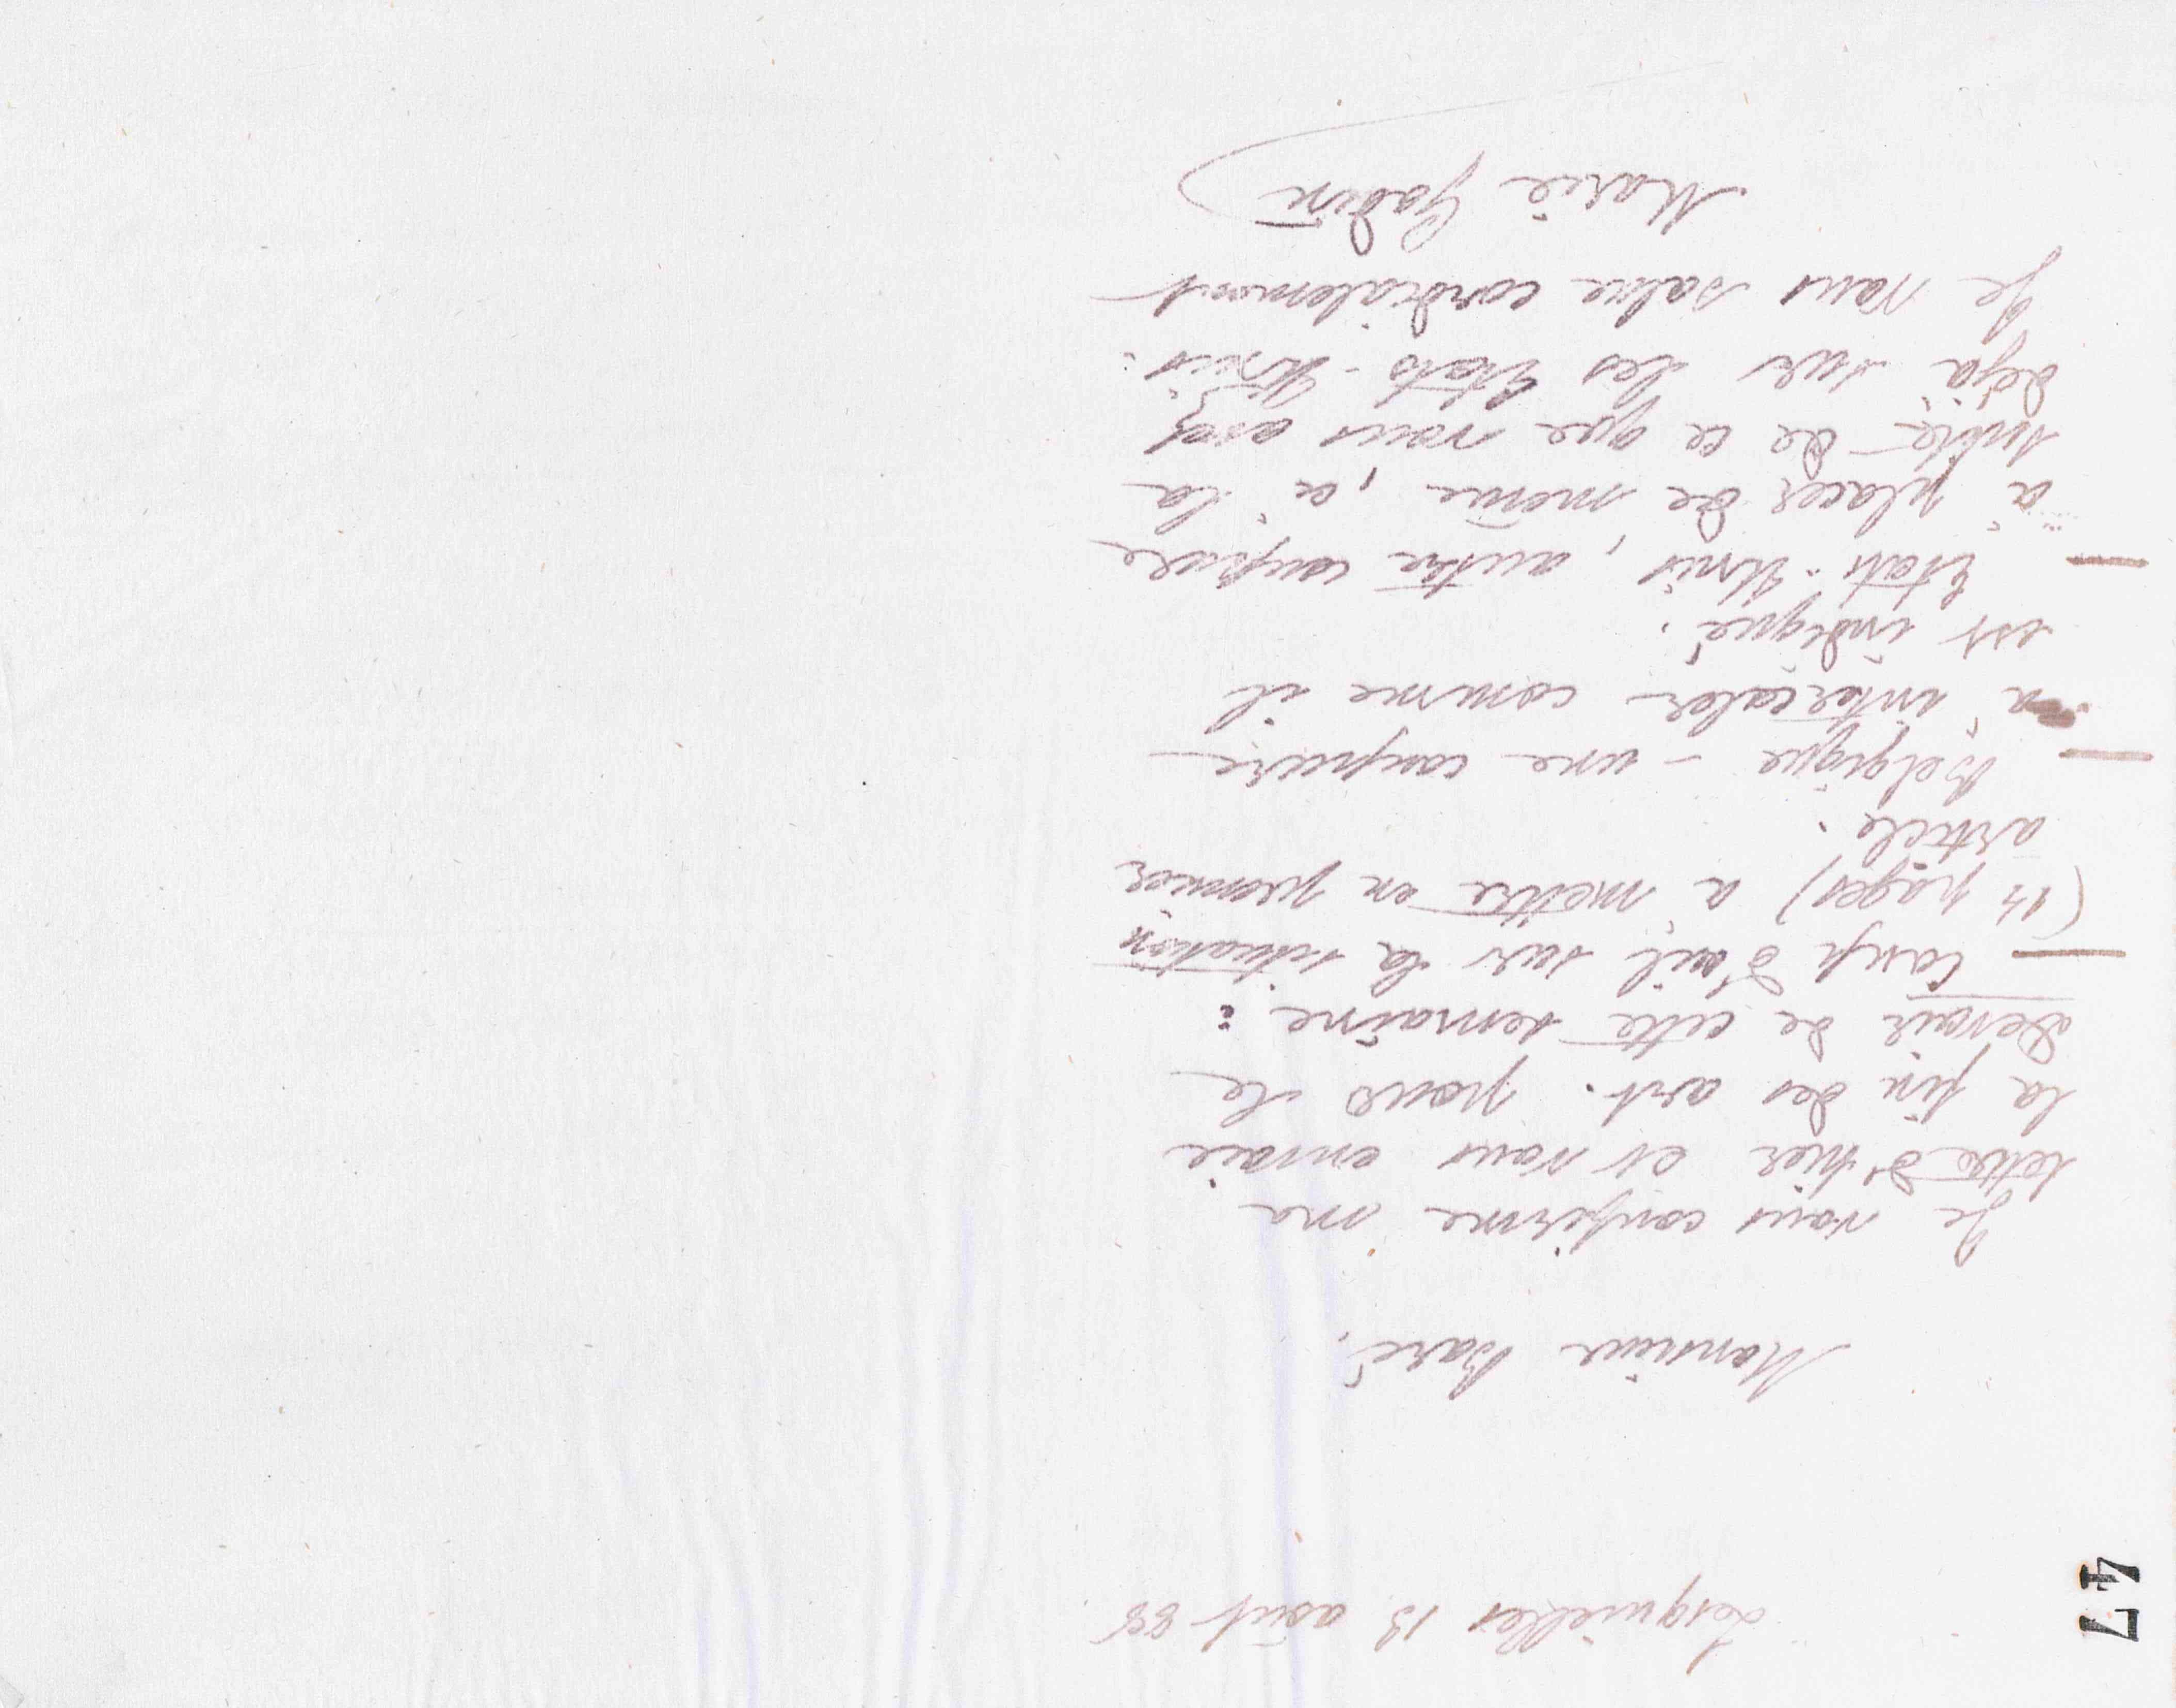 47
Lesquielles 13 août 88
Monsieur Baré,
Je vous confirme ma
lettre d'hier et vous envoie
la fin des art. pour le
Devoir de cette semaine :
— Coup d'œil sur la situation
(14 pages) à mettre en premier
article.
— Belgique - une coupure
à intercaler comme il
est indiqué.
— Etats-Unis, autre coupure
à placer de même, à la
suite de ce que vous avez
déjà sur les Etats-Unis.
Je vous salue cordialement
Marie Godin